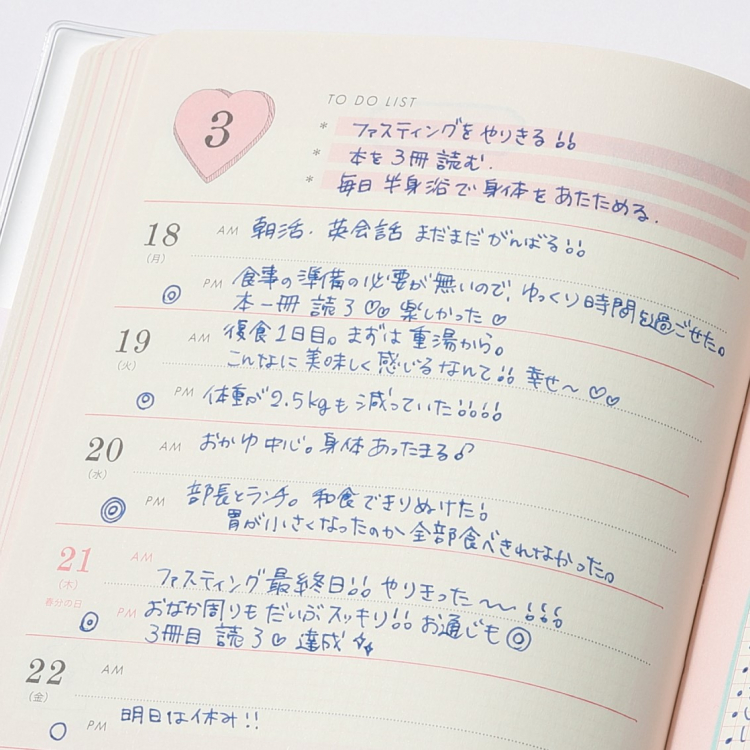 3
TO DO LIST
* ファスティングをやりきる!!
* 本を3冊読む.
* 毎日半身浴で身体をあたためる.
18
(月)
AM 朝活.英会話まだまだがんばる!!
PM 食事の準備の必要が無いので,ゆっくり時間を過ごせた。
◎ 本一冊読了♡♡楽しかった♡
19
(火)
AM 復食1日目。まずは重湯から。
こんなに美味しく感じるなんて!!幸せ〜♡♡
◎ PM 体重が2.5kgも減っていた!!!!
20
(水)
AM おかゆ中心。身体あったまる♪
◎ PM 部長とランチ。和食できりぬけた!
胃が小さくなったのか全部食べきれなかった。
21
(木)
春分の日
AM
ファスティング最終日!!やりきった〜〜!!!
◎ PM おなか周りもだいぶスッキリ!!お通じも◎
3冊目読了♡達成
22
(金)
AM
○ PM 明日は休み!!